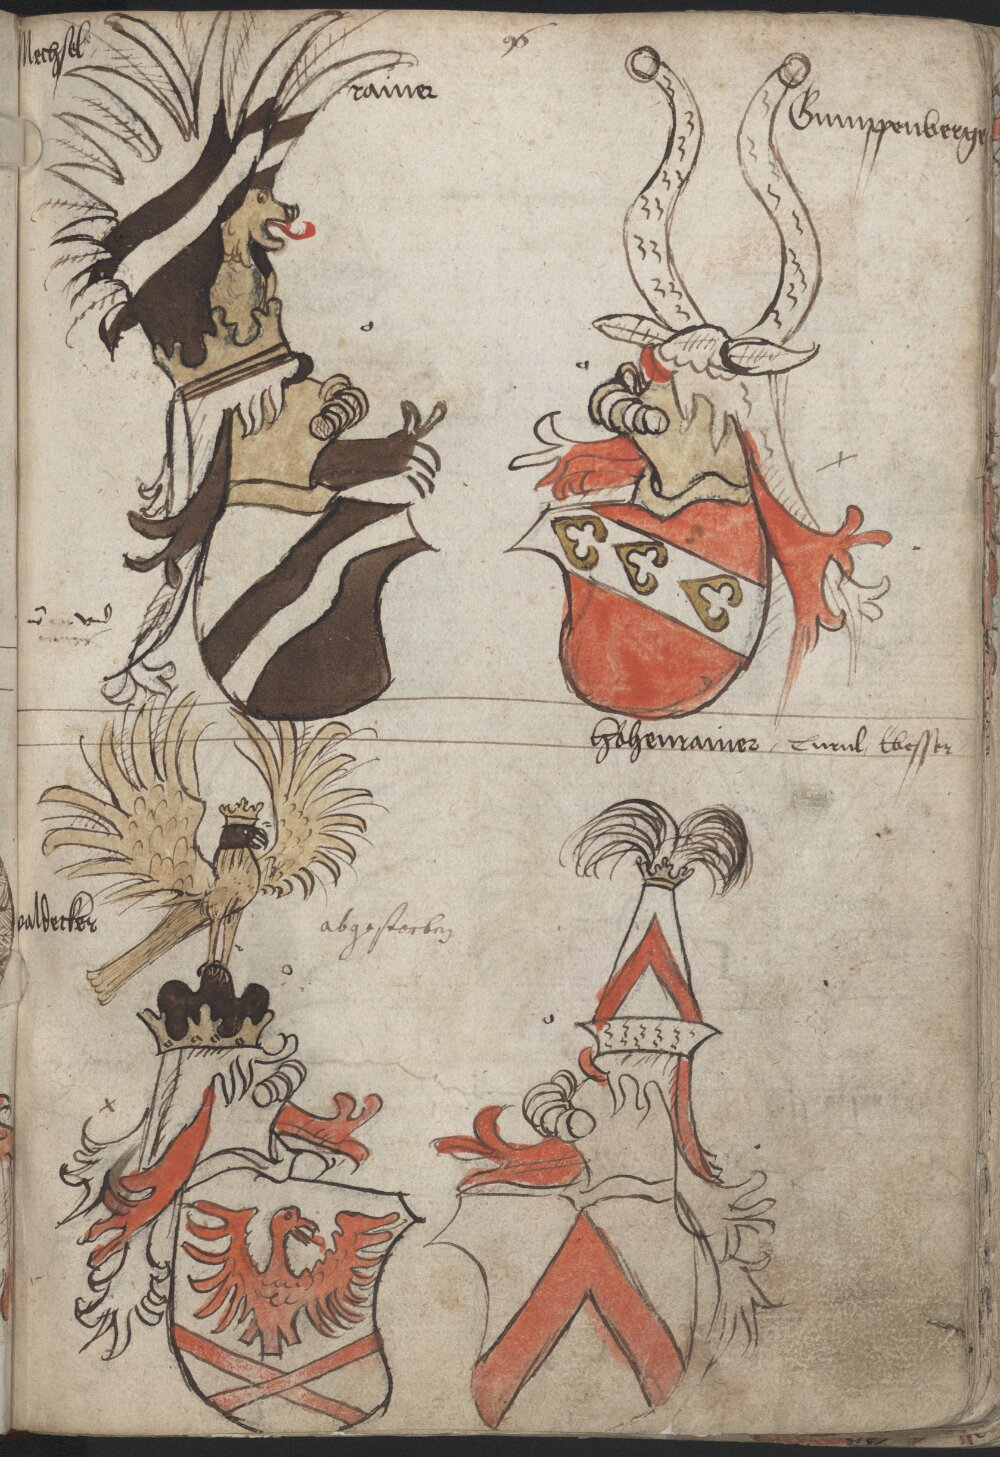 96
Mechsel
rainer
Gumppenberger
Hohenrainer
waldecker
abgestorben